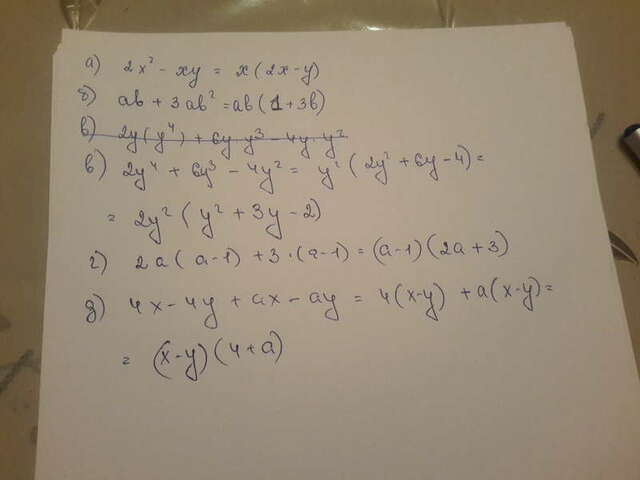 а) 2x² - xy = x(2x-y)
б) ab + 3ab² = ab(1+3b)
в) 2y(y⁴) + 6y y³ - 4y·y²
в) 2y⁴ + 6y³ - 4y² = y²(2y² + 6y - 4) =
= 2y²(y² + 3y - 2)
г) 2a(a-1) + 3·(a-1) = (a-1)(2a+3)
д) 4x - 4y + ax - ay = 4(x-y) + a(x-y) =
= (x-y)(4+a)